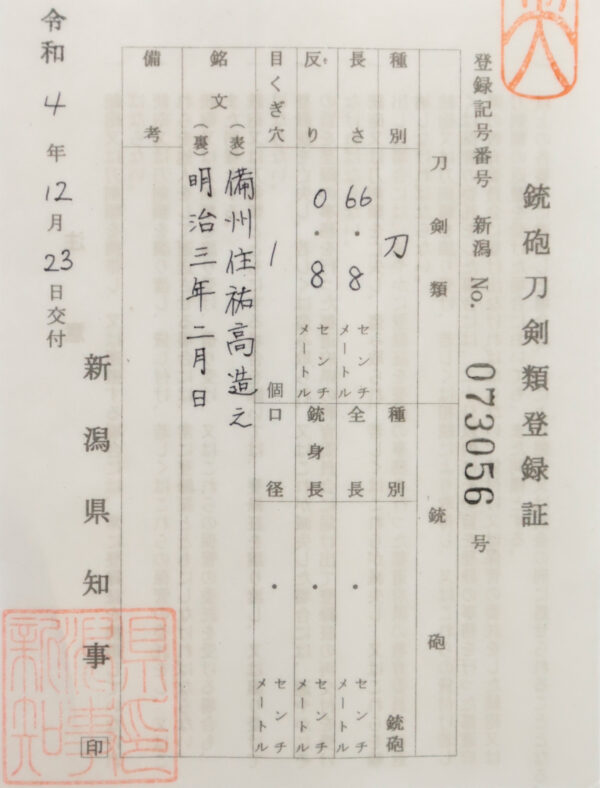 銃砲刀剣類登録証
登録記号番号 新潟 No. 073056 号
刀剣類 銃砲
種別 刀 種別 銃砲
長さ 66・8 センチメートル 全長 ・ センチメートル
反り 0・8 センチメートル 銃身長 ・ センチメートル
目くぎ穴 1 個 口径 ・ センチメートル
銘文 (表) 備州住祐高造之
(裏) 明治三年二月日
備考
令和4年12月23日交付
新潟県知事 印
新潟県知事印